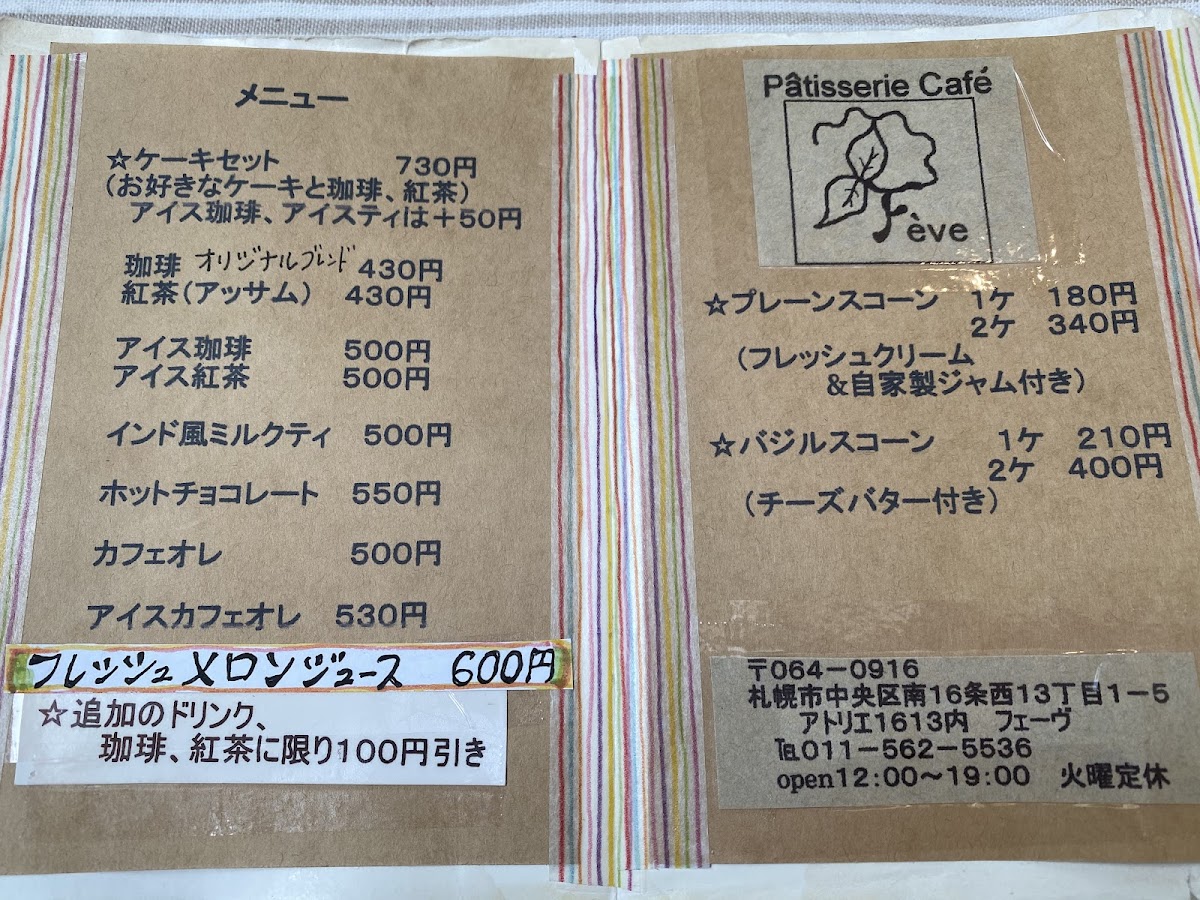 メニュー
☆ケーキセット 730円
(お好きなケーキと珈琲、紅茶)
アイス珈琲、アイスティは+50円
珈琲 オリジナルブレンド 430円
紅茶(アッサム) 430円
アイス珈琲 500円
アイス紅茶 500円
インド風ミルクティ 500円
ホットチョコレート 550円
カフェオレ 500円
アイスカフェオレ 530円
フレッシュメロンジュース 600円
☆追加のドリンク、
珈琲、紅茶に限り100円引き
Pâtisserie Café
Fève
☆プレーンスコーン 1ケ 180円
2ケ 340円
(フレッシュクリーム
&自家製ジャム付き)
☆バジルスコーン 1ケ 210円
2ケ 400円
(チーズバター付き)
〒064-0916
札幌市中央区南16条西13丁目1-5
アトリエ1613内 フェーヴ
℡011-562-5536
open12:00~19:00 火曜定休